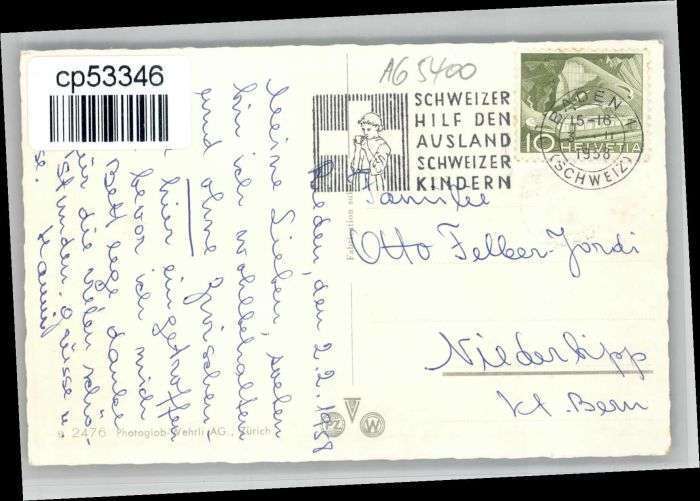 cp53346
AG 5400
SCHWEIZER
HILF DEN
AUSLAND
SCHWEIZER
KINDERN
BADEN 1
15-16
1958
(SCHWEIZ)
10 HELVETIA
Baden, den 2.2.1958
Meine Lieben, soeben
bin ich wohlbehalten
und ohne Zwischen-
hier eingetroffen
bevor ich mich
Bett lege danke
für die vielen schö-
Stunden. Grüsse u.
Familie
Otto Felber-Jordi
Niederbipp
Kt. Bern
2476 Photoglob-Wehrli AG., Zürich
PZ
W